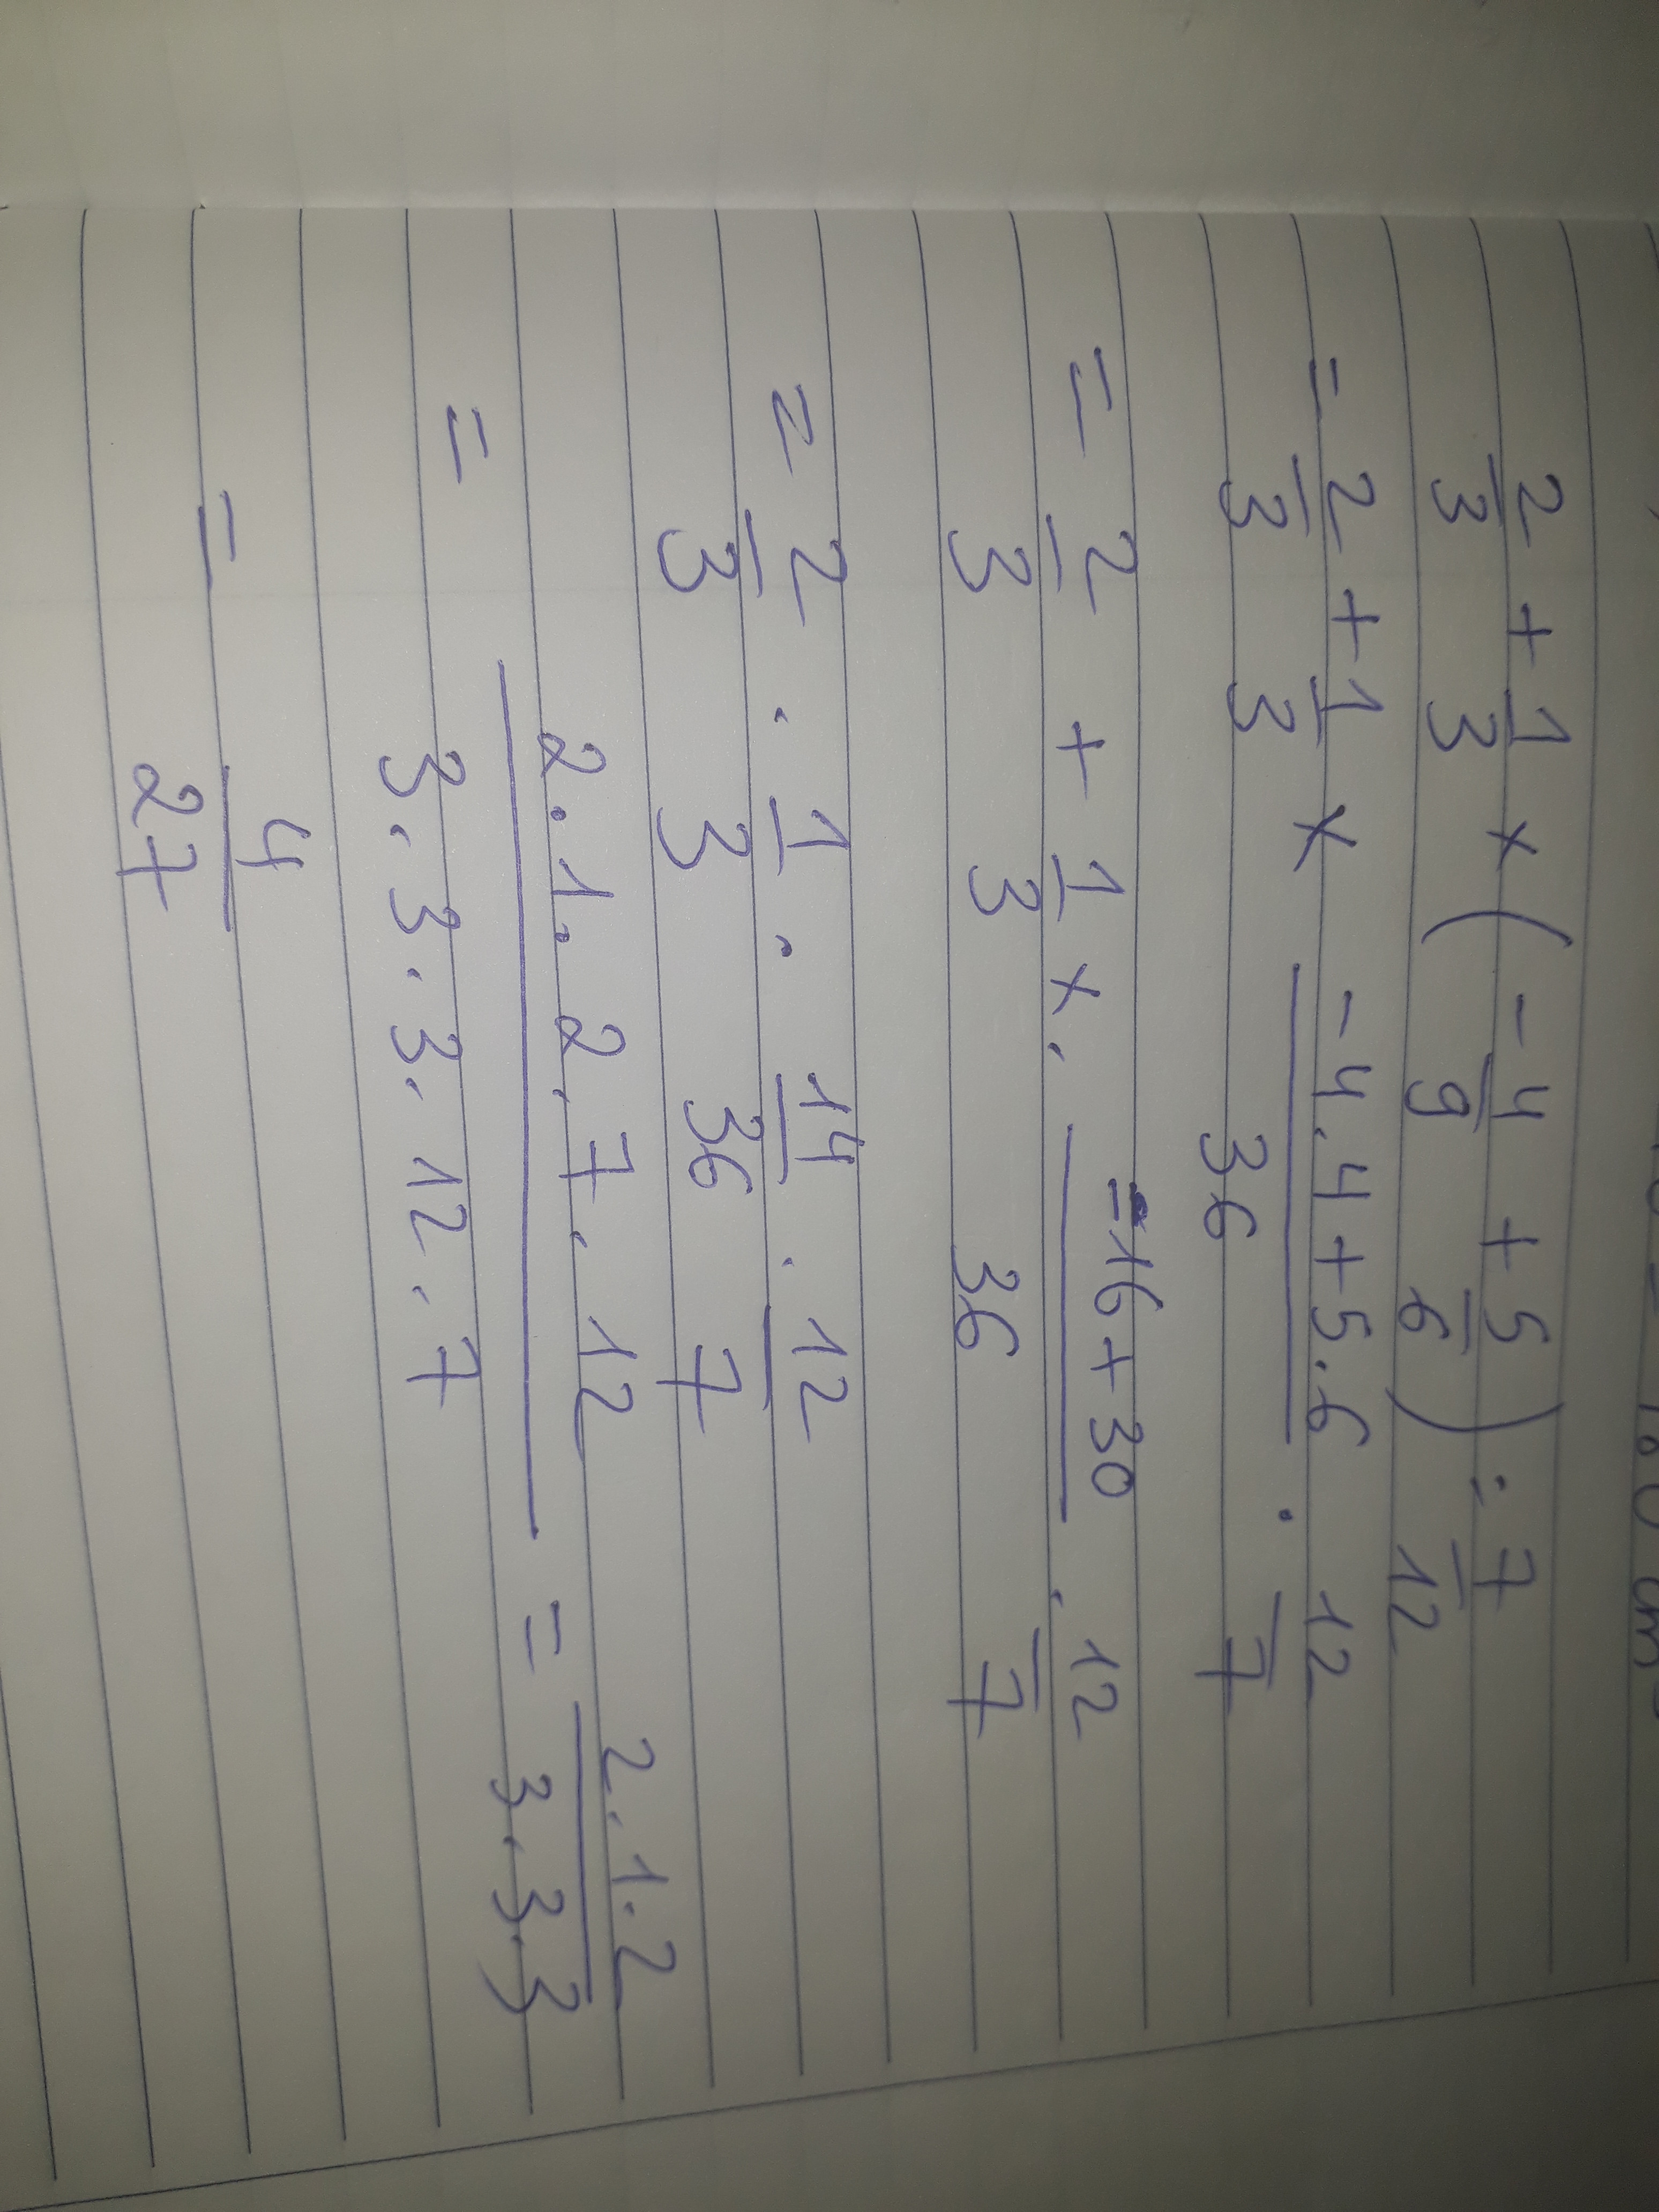 2/3 + 1/3 × ( -4/9 + 5/6 ) : 7/12
= 2/3 + 1/3 × (-4.4+5.6)/36 . 12/7
= 2/3 + 1/3 ×. (-16+30)/36 . 12/7
= 2/3 . 1/3 . 14/36 . 12/7
= (2.1.2.7.12)/(3.3.3.12.7) = (2.1.2)/(3.3.3)
= 4/27